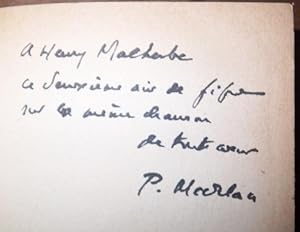 A Henry Malherbe
ce deuxième air de fifre
sur la même chanson
de tout cœur
P. Mac Orlan